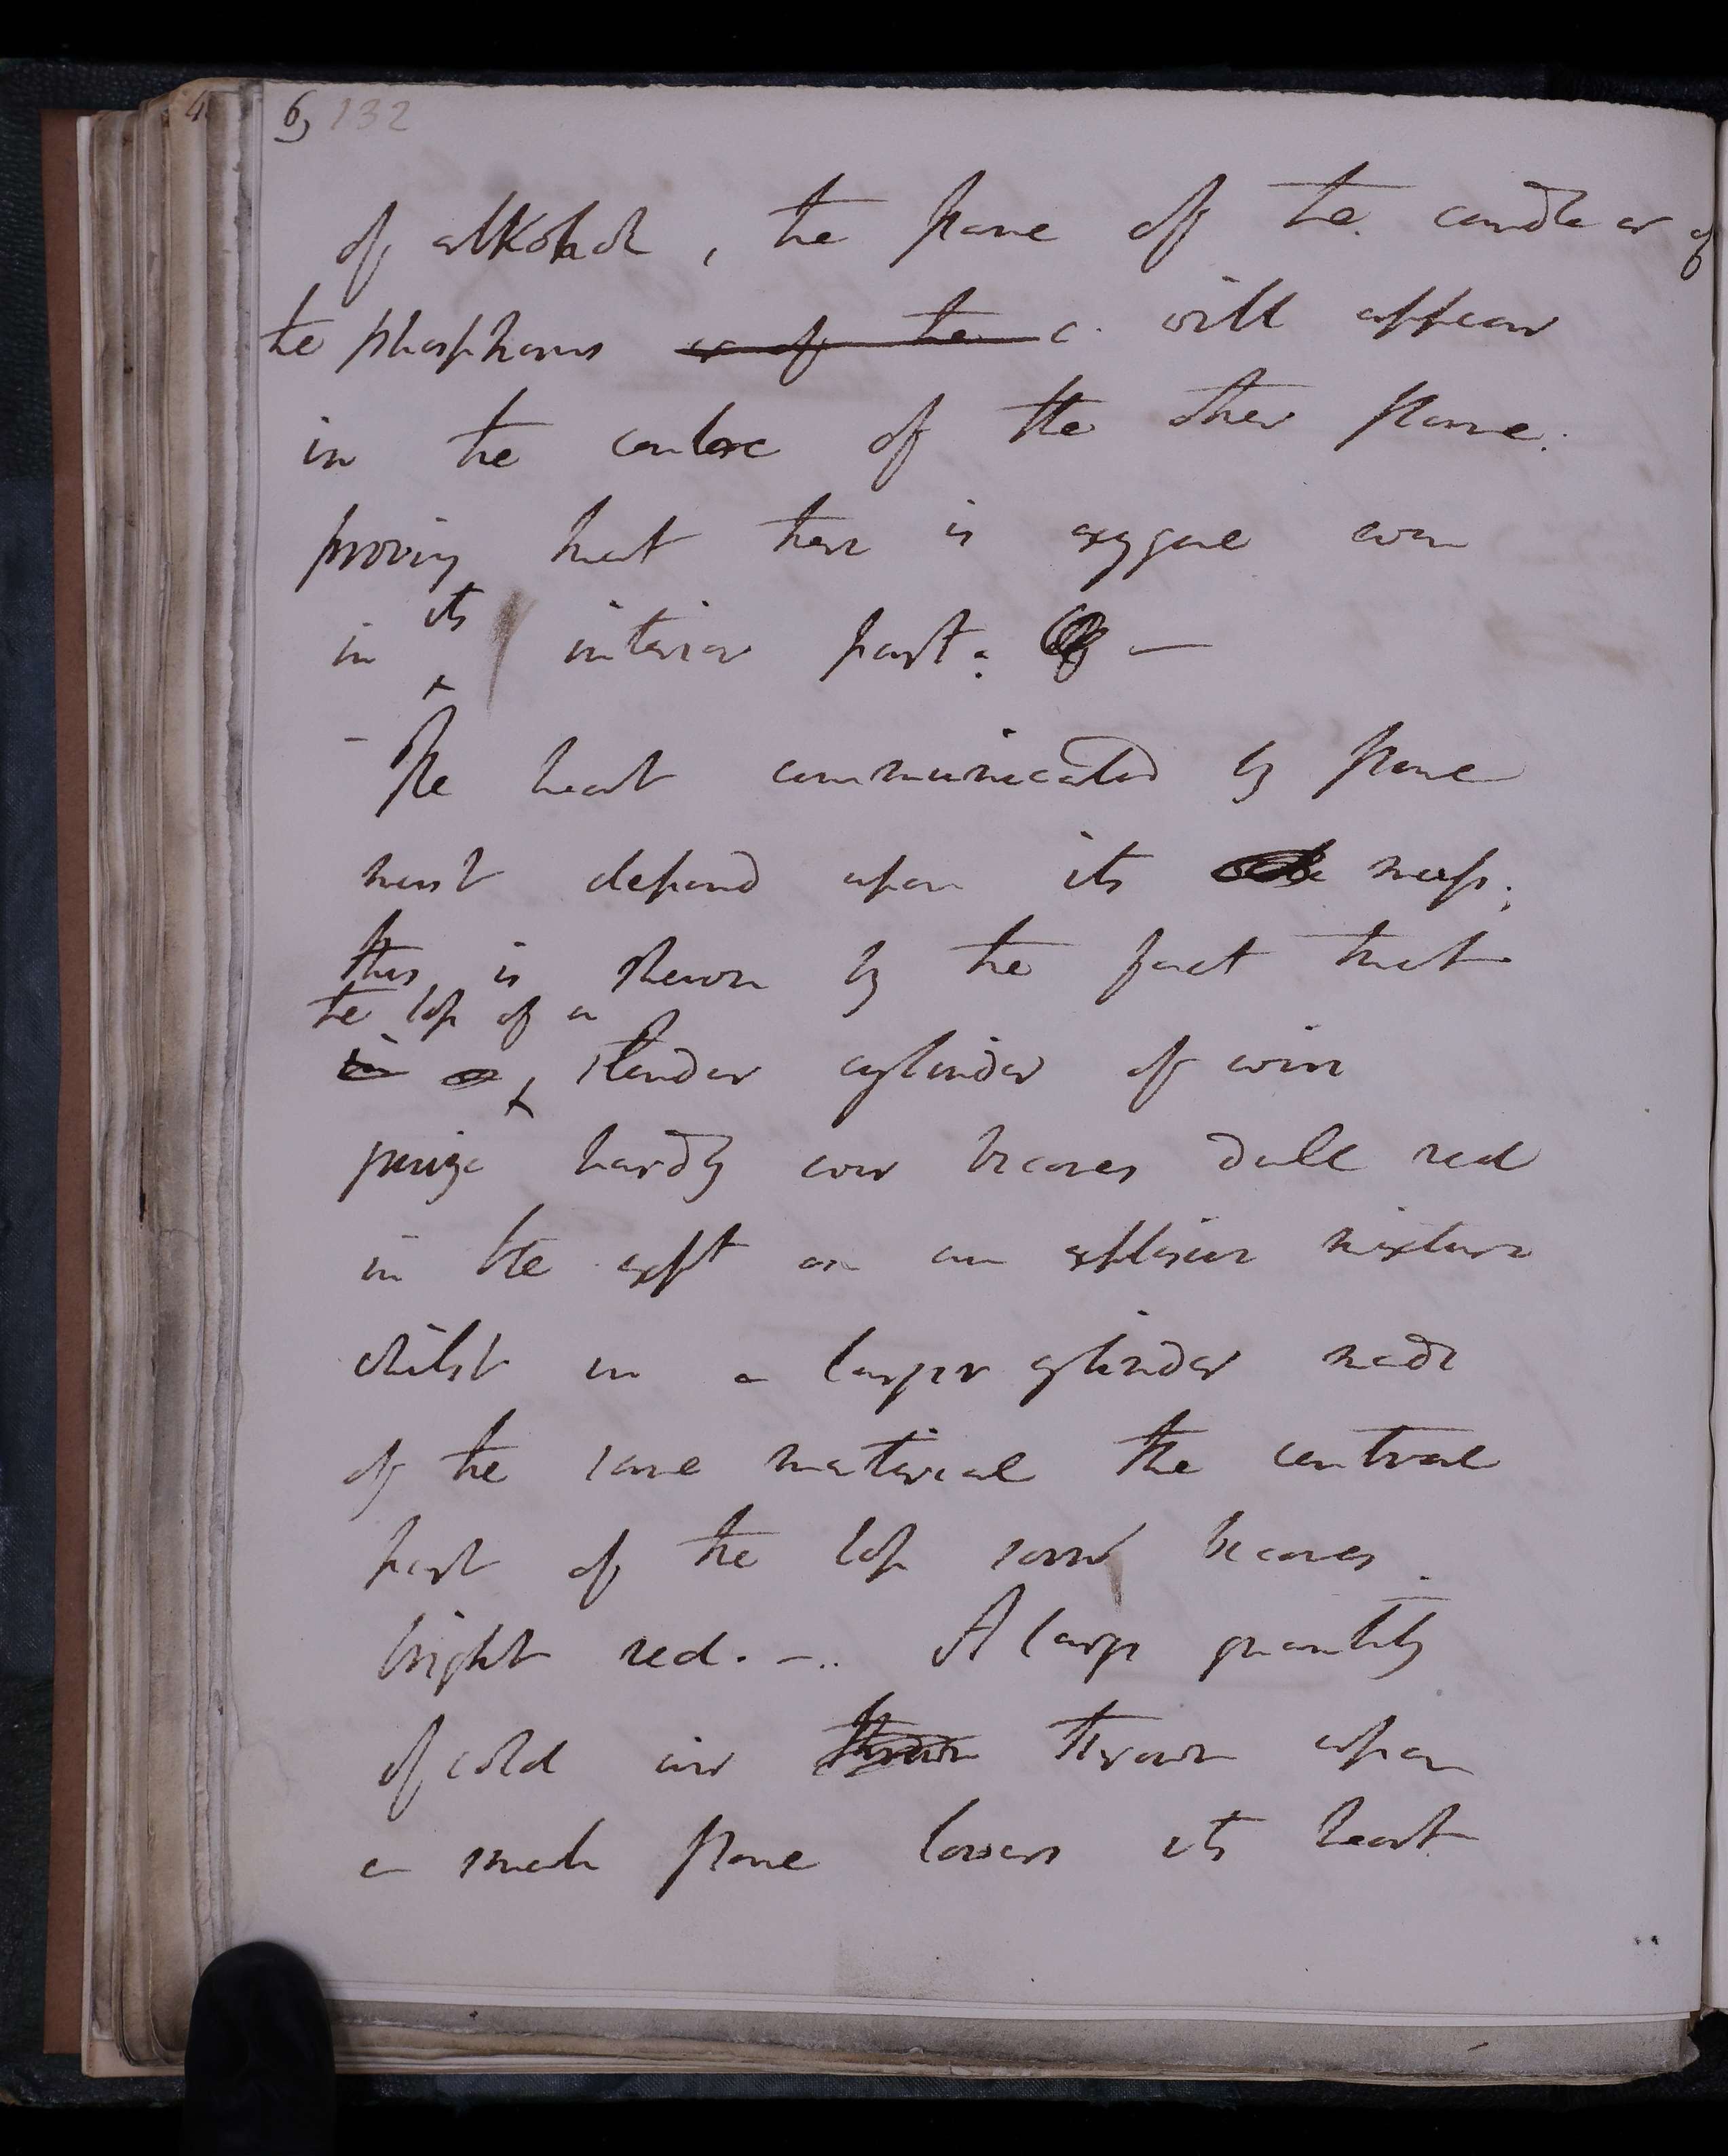 6, 132
of alkohol, the flame of the candle or of
the phosphorus or of the c. will appear
in the centre of the other flame.
proving that there is oxygene even
in its interior part: —
- The heat communicated by flame
must depend upon its mass;
this is shewn by the fact that
the top of a
in a slender cylinder of wire
gauze hardly ever becomes dull red
in the expt on an explosive mixture
whilst in a larger cylinder made
of the same material the central
part of the top soon becomes
bright red. - . A large quantity
of cold air thrown thrown upon
a small flame lowers its heat